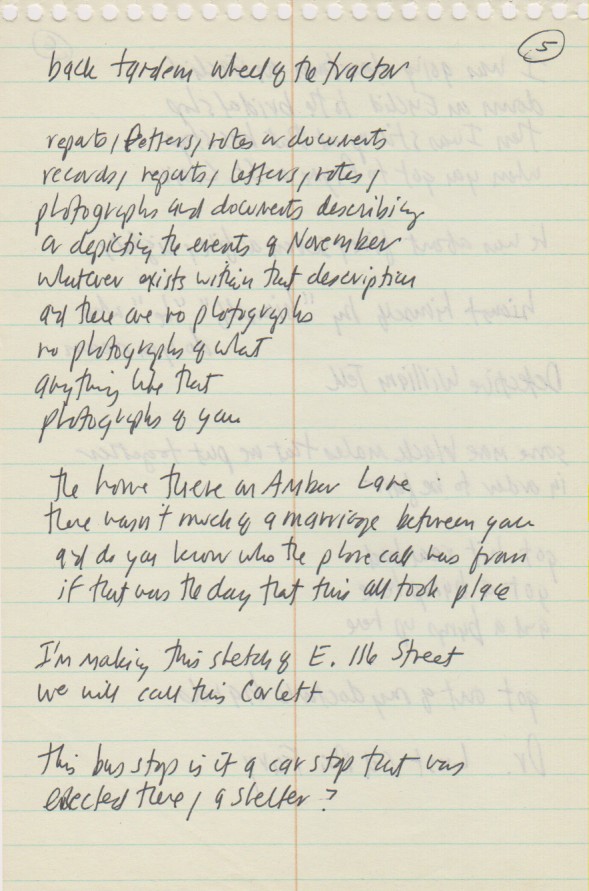 5
back tandem wheel of the tractor
reports, letters, notes or documents
records, reports, letters, notes,
photographs and documents describing
or depicting the events of November
whatever exists within that description
and there are no photographs
no photographs of what
anything like that
photographs of you
the home there on Amber Lane
there wasn't much of a marriage between you
and do you know who the phone call was from
if that was the day that this all took place
I'm making this sketch of E. 116 Street
we will call this Corlett
this bus stop is it a car stop that was
erected there, a shelter?